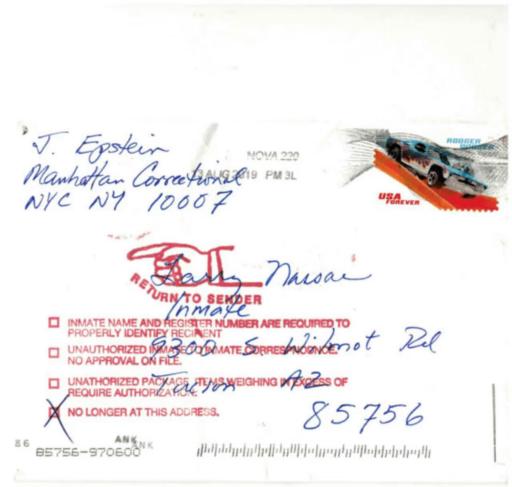 J. Epstein
Manhattan Correctional
NYC NY 10007
NOVA 220
AUG 2019 PM 3L
USA
FOREVER
Larry Nassar
RETURN TO SENDER
Inmate
INMATE NAME AND REGISTER NUMBER ARE REQUIRED TO
PROPERLY IDENTIFY RECIPIENT
9300 S Wilmot Rd
UNAUTHORIZED INMATE TO INMATE CORRESPONDENCE.
NO APPROVAL ON FILE.
Tucson AZ
UNATHORIZED PACKAGE. ITEMS WEIGHING IN EXCESS OF
REQUIRE AUTHORIZATION.
X NO LONGER AT THIS ADDRESS.
85756
86
ANK
ANK
85756-970600